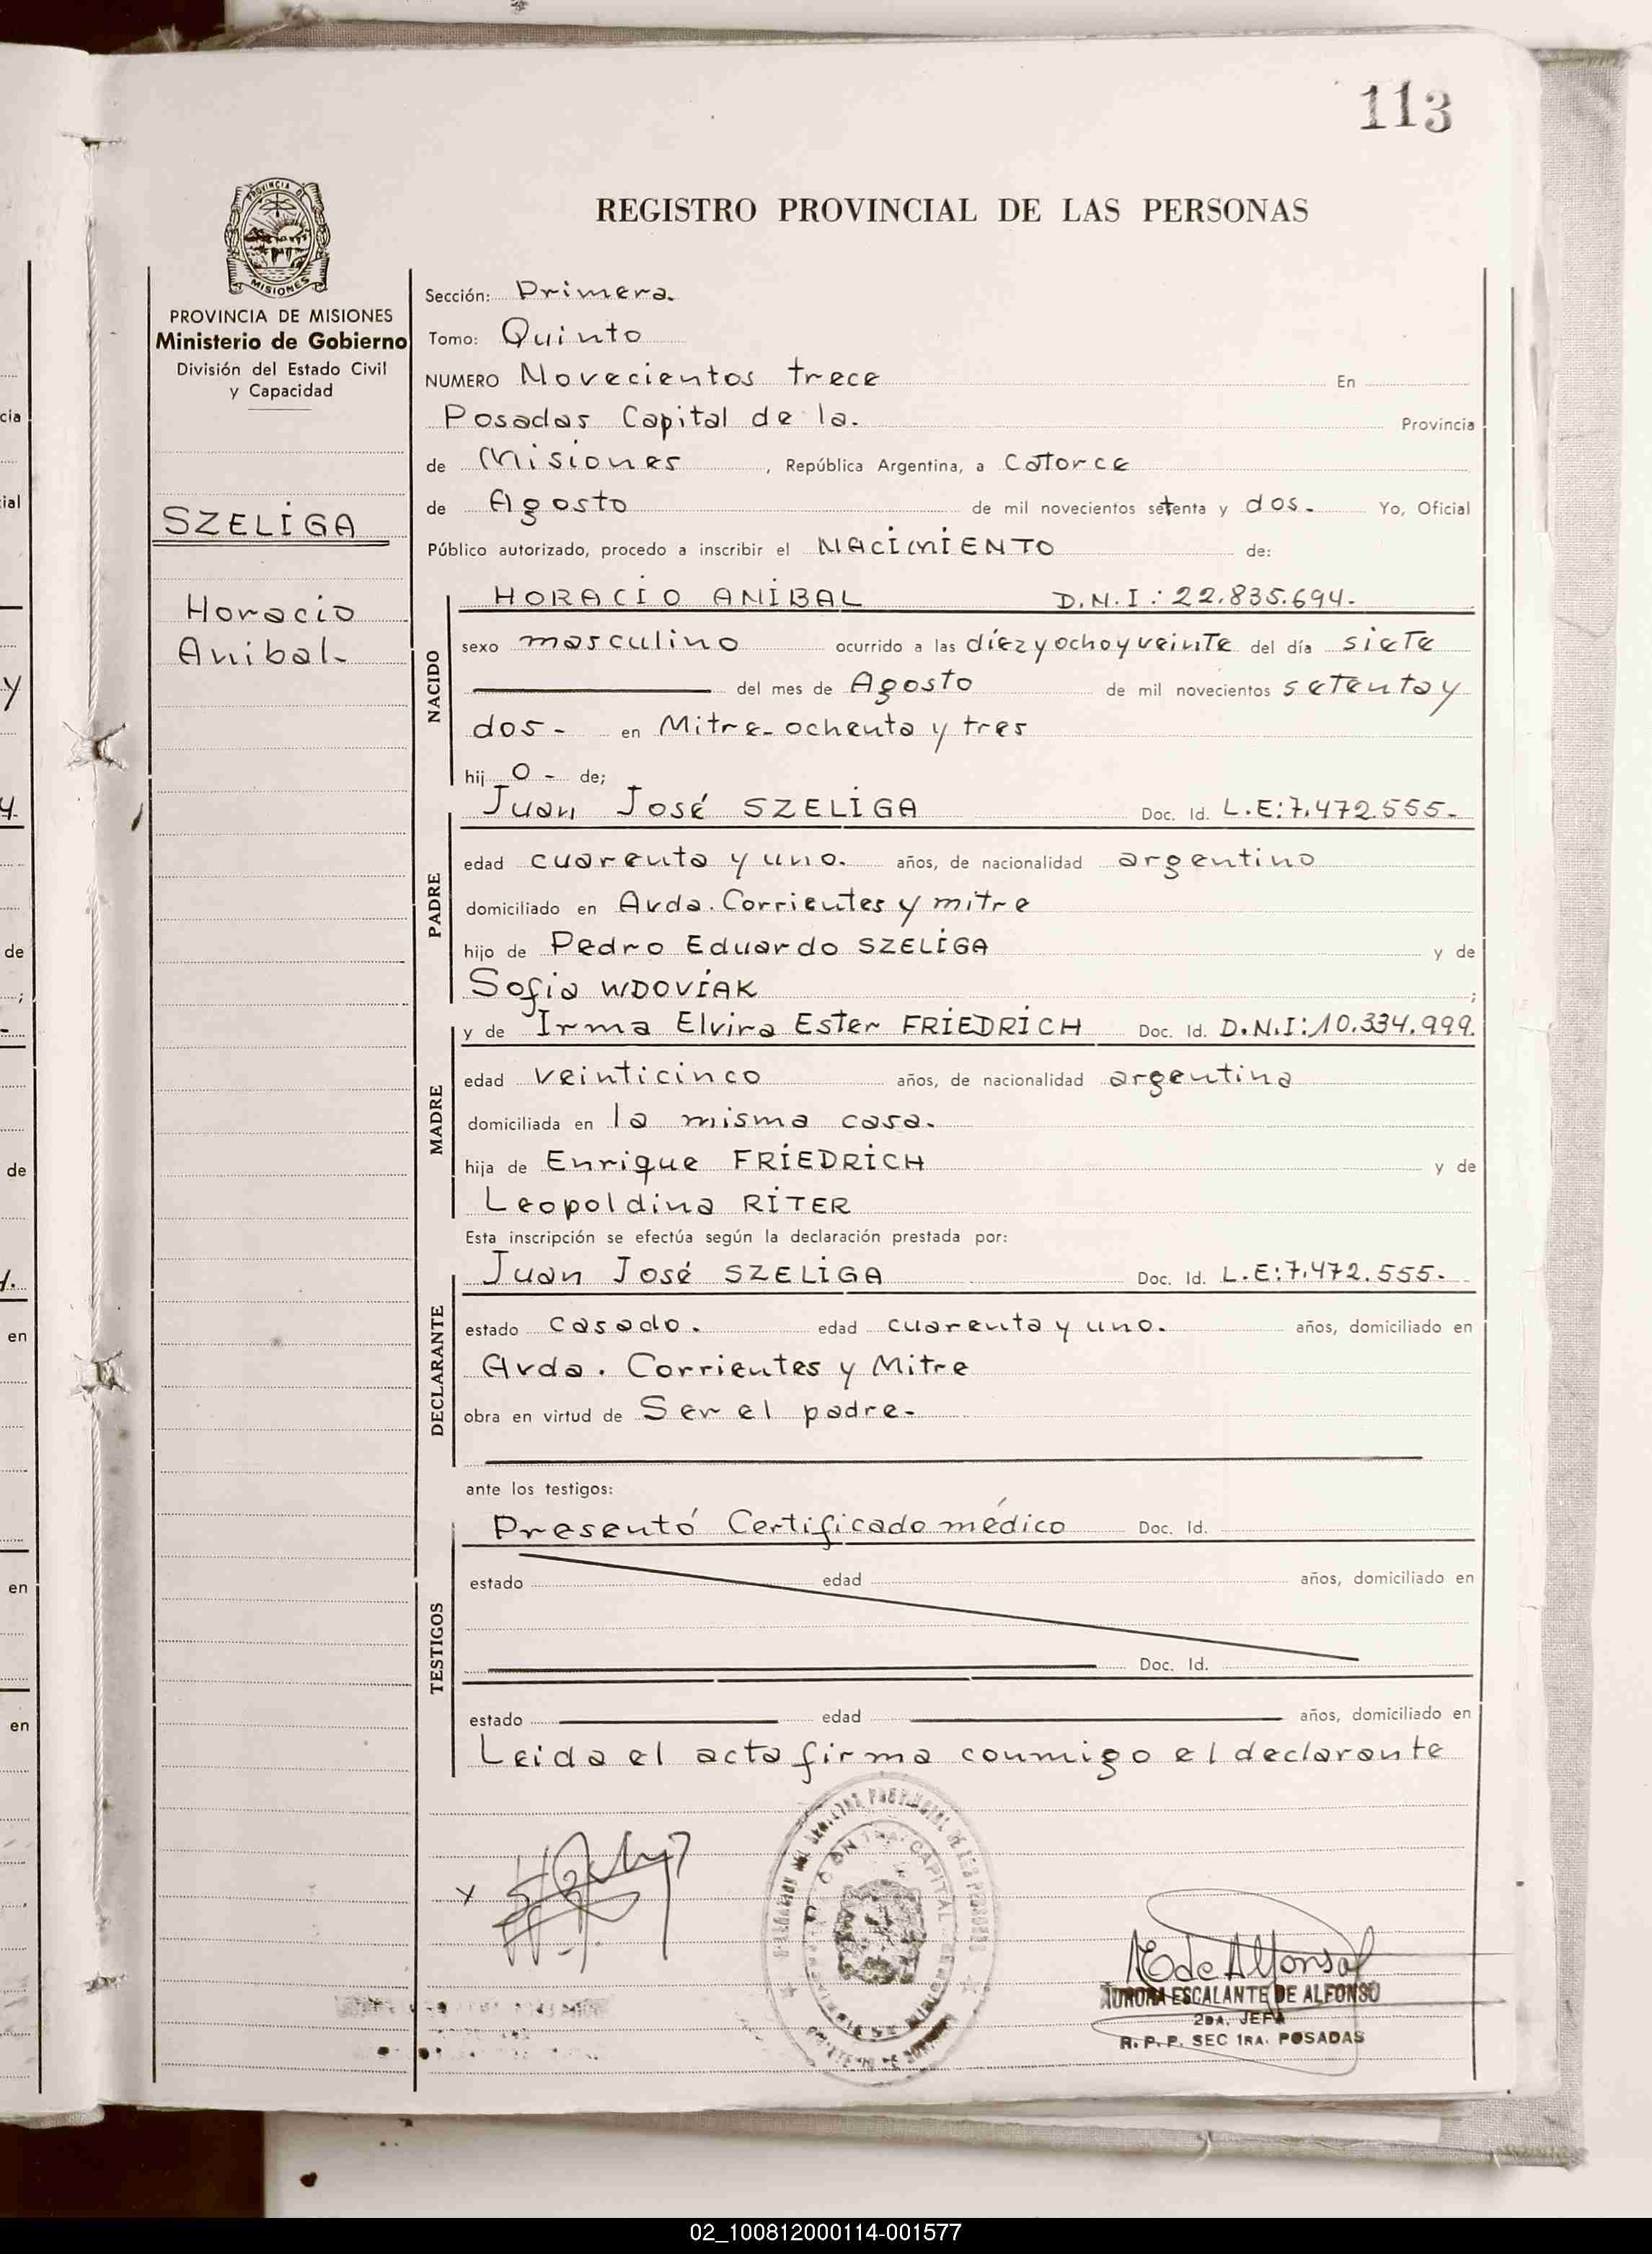 113
PROVINCIA DE
MISIONES
REGISTRO PROVINCIAL DE LAS PERSONAS
PROVINCIA DE MISIONES
Ministerio de Gobierno
División del Estado Civil
y Capacidad
SZELIGA
Horacio
Anibal-
Sección: Primera.
Tomo: Quinto
NUMERO Novecientos trece En
Posadas Capital de la. Provincia
de Misiones, República Argentina, a catorce
de Agosto de mil novecientos setenta y dos. Yo, Oficial
Público autorizado, procedo a inscribir el NACIMIENTO de:
NACIDO
HORACIO ANIBAL D.N.I: 22.835.694.
sexo masculino ocurrido a las diez y ocho y veinte del día siete
del mes de Agosto de mil novecientos setenta y
dos- en Mitre- ochenta y tres
hij o- de;
PADRE
Juan José SZELIGA Doc. Id. L.E:7.472.555-
edad cuarenta y uno. años, de nacionalidad argentino
domiciliado en Avda. Corrientes y mitre
hijo de Pedro Eduardo SZELIGA y de
Sofia WDOVIAK ;
MADRE
y de Irma Elvira Ester FRIEDRICH Doc. Id. D.N.I:10.334.999.
edad veinticinco años, de nacionalidad argentina
domiciliada en la misma casa.
hija de Enrique FRIEDRICH y de
Leopoldina RITER
Esta inscripción se efectúa según la declaración prestada por:
DECLARANTE
Juan José SZELIGA Doc. Id. L.E:7.472.555-
estado casado. edad cuarenta y uno. años, domiciliado en
Avda. Corrientes y Mitre
obra en virtud de Ser el padre-
ante los testigos:
TESTIGOS
Presentó Certificado médico Doc. Id.
estado edad años, domiciliado en
Doc. Id.
estado edad años, domiciliado en
Leida el acta firma conmigo el declarante
CAPITAL
AE de Alfonso
AURORA ESCALANTE DE ALFONSO
2DA. JEFA
R. P. P. SEC 1RA. POSADAS
cia
ial
y
4.
de
;
de
en
en
en
02_100812000114-001577